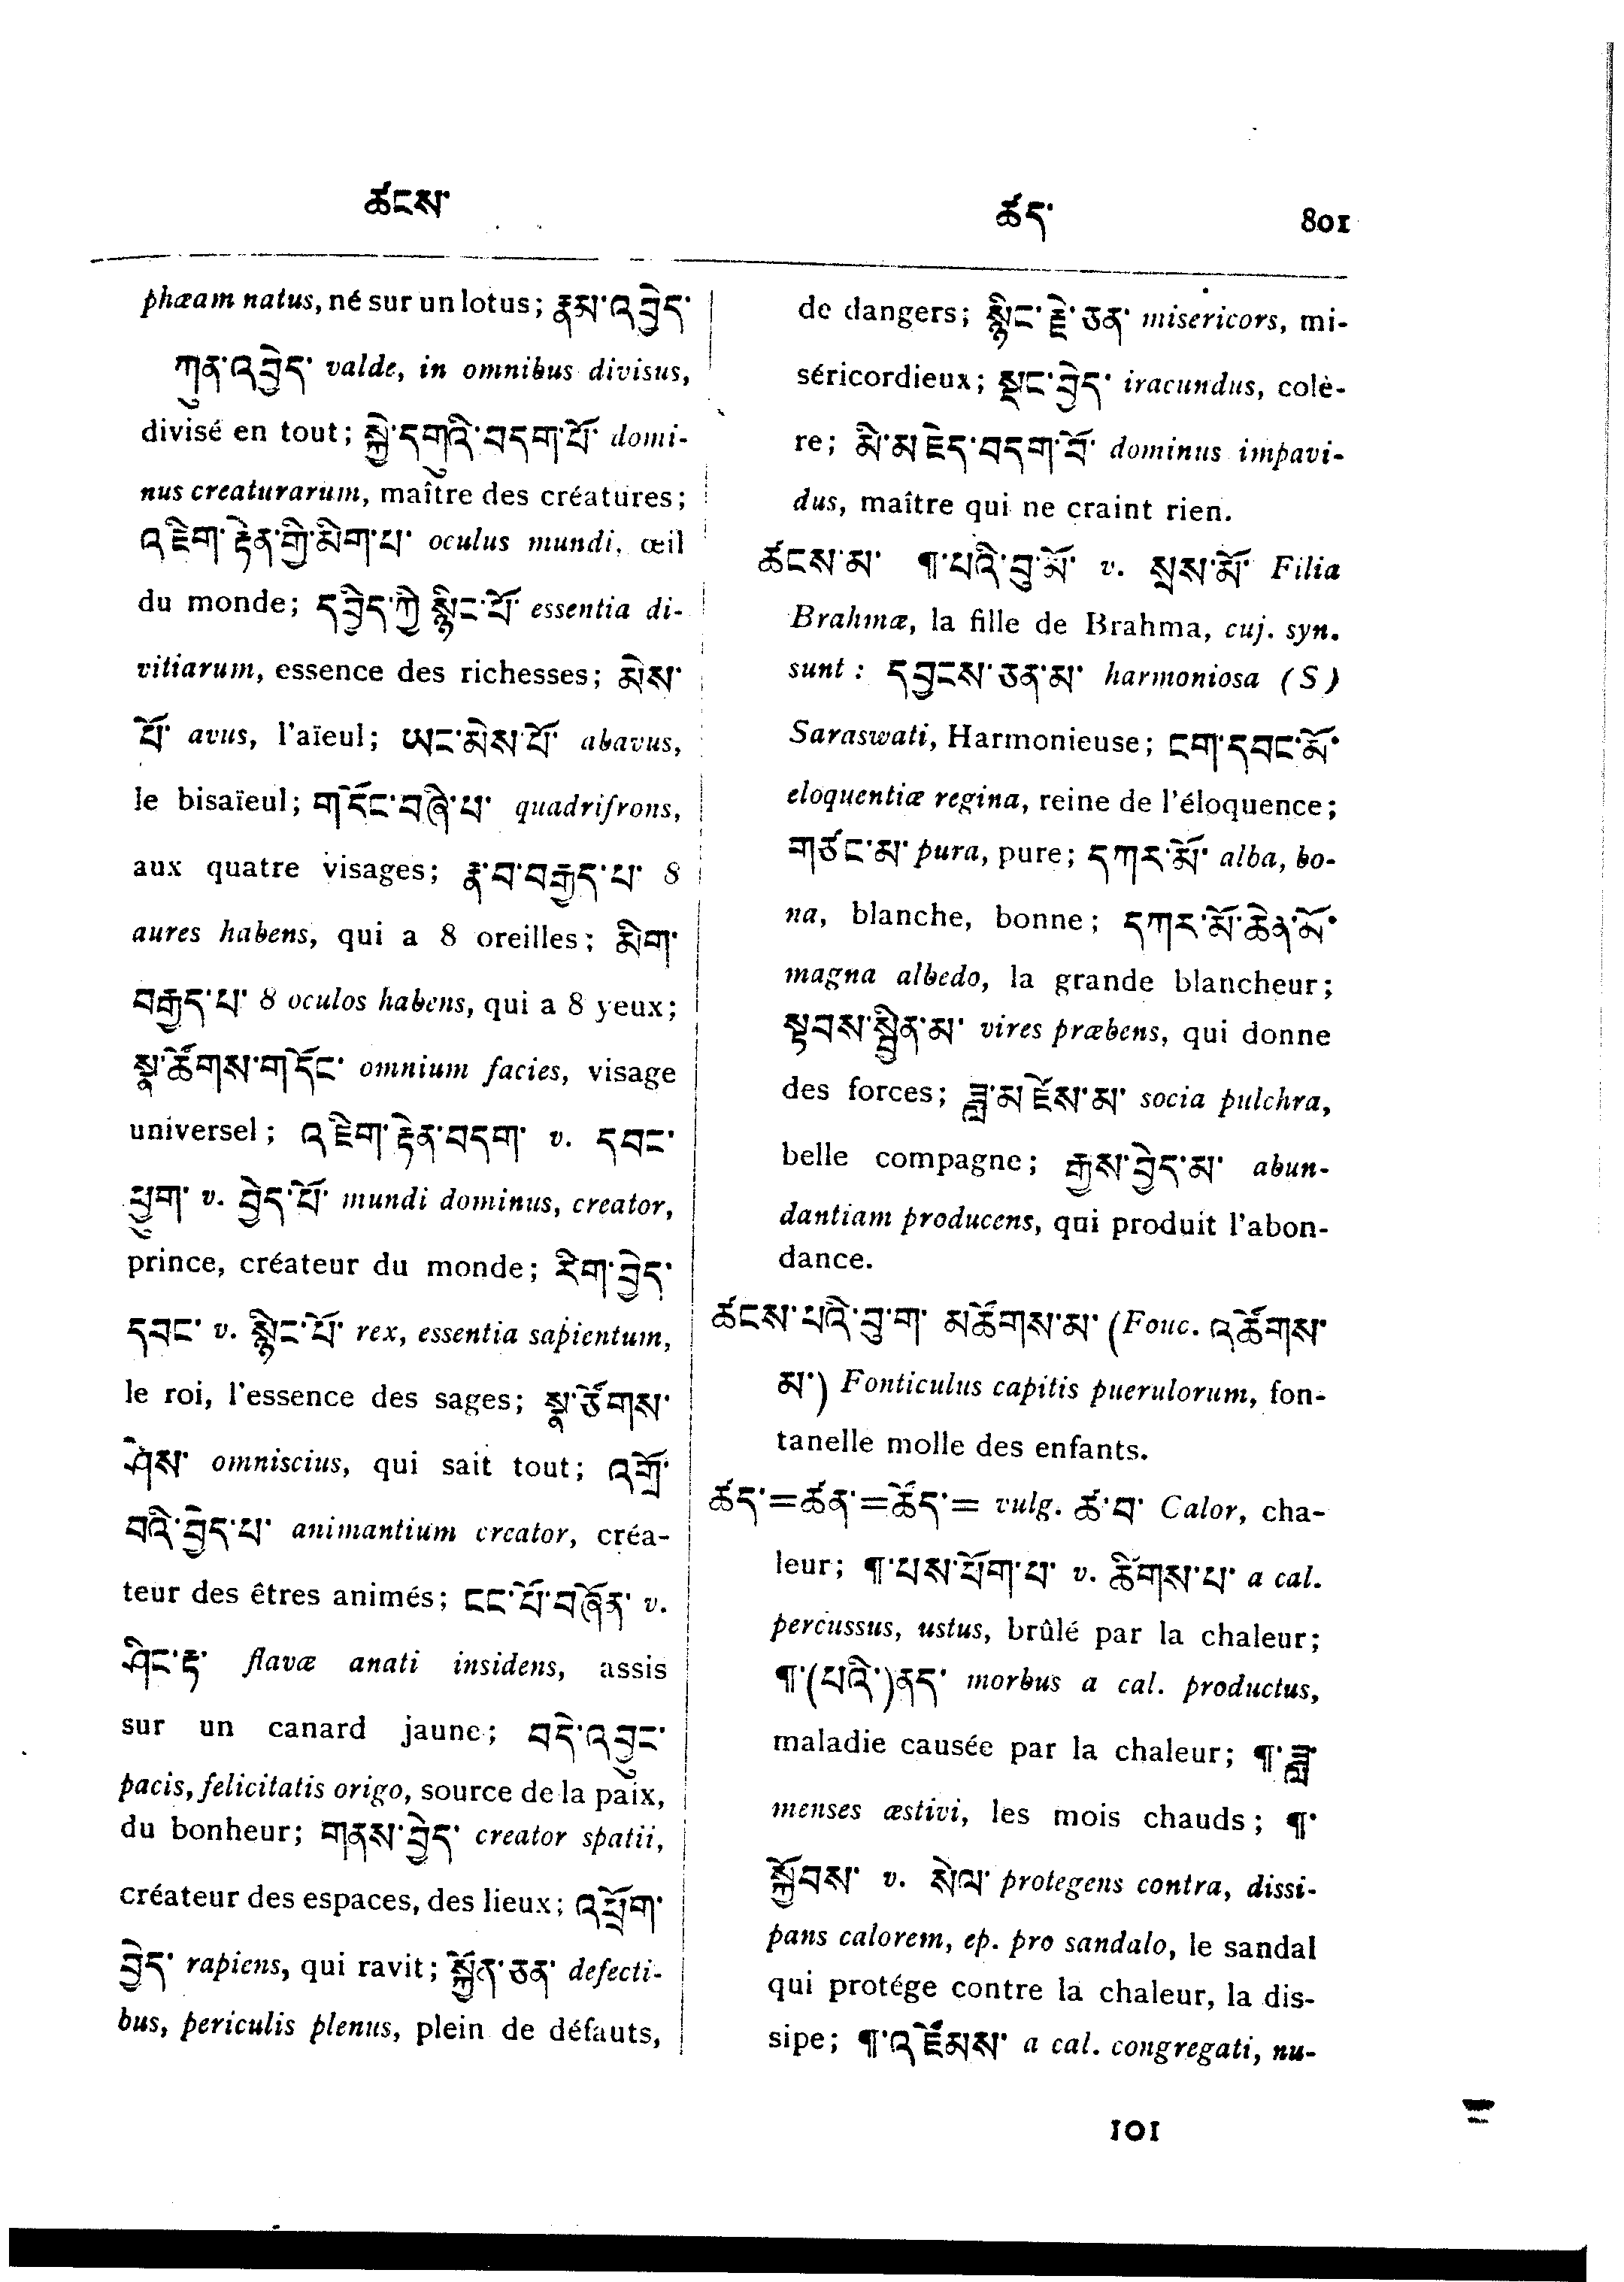 ཚངས་
ཚད་ 801
phæam natus, né sur un lotus; རྣམ་འབྱེད་
ཀུན་འབྱེད་ valde, in omnibus divisus,
divisé en tout; སྐྱེ་དགུའི་བདག་པོ་ domi-
nus creaturarum, maître des créatures;
འཇིག་རྟེན་གྱི་མིག་པ་ oculus mundi, œil
du monde; དབྱིད་ཀྱི་སྙིང་པོ་ essentia di-
vitiarum, essence des richesses; མེས་
པོ་ avus, l'aïeul; ཡང་མེས་པོ་ abavus,
le bisaïeul; གདོང་བཞི་པ་ quadrifrons,
aux quatre visages; རྣ་བ་བརྒྱད་པ་ 8
aures habens, qui a 8 oreilles; མིག་
བརྒྱད་པ་ 8 oculos habens, qui a 8 yeux;
སྣ་ཚོགས་གདོང་ omnium facies, visage
universel; འཇིག་རྟེན་བདག་ v. དབང་
ཕྱུག་ v. བྱེད་པོ་ mundi dominus, creator,
prince, créateur du monde; རིག་བྱེད་
དབང་ v. སྙིང་པོ་ rex, essentia sapientum,
le roi, l'essence des sages; སྣ་ཙོགས་
ཤེས་ omniscius, qui sait tout; འགྲོ་
བའི་བྱེད་པ་ animantium creator, créa-
teur des êtres animés; ངང་པོ་བཞོན་ v.
ཤིང་རྟ་ flavæ anati insidens, assis
sur un canard jaune; བདེ་འབྱུང་
pacis, felicitatis origo, source de la paix,
du bonheur; གནས་བྱེད་ creator spatii,
créateur des espaces, des lieux; འཕྲོག་
བྱེད་ rapiens, qui ravit; སྐྱོན་ཅན་ defecti-
bus, periculis plenus, plein de défauts,
de dangers; སྙིང་རྗེ་ཅན་ misericors, mi-
séricordieux; སྡང་བྱེད་ iracundus, colè-
re; མི་མཇེད་བདག་པོ་ dominus impavi-
dus, maître qui ne craint rien.
ཚངས་མ་ ¶་པའི་བུ་མོ་ v. སྲས་མོ་ Filia
Brahmæ, la fille de Brahma, cuj. syn.
sunt: དབྱངས་ཅན་མ་ harmoniosa (S)
Saraswati, Harmonieuse; ངག་དབང་མོ་
eloquentiæ regina, reine de l'éloquence;
གཙང་མ་ pura, pure; དཀར་མོ་ alba, bo-
na, blanche, bonne; དཀར་མོ་ཆེན་མོ་
magna albedo, la grande blancheur;
སྟབས་སྦྱིན་མ་ vires præbens, qui donne
des forces; ཟླ་མཛེས་མ་ socia pulchra,
belle compagne; རྒྱས་བྱེད་མ་ abun-
dantiam producens, qui produit l'abon-
dance.
ཚངས་པའི་བུ་ག་ མཚོགས་མ་ (Fouc. འཚོགས་
མ་) Fonticulus capitis puerulorum, fon-
tanelle molle des enfants.
ཚད་=ཚན་=ཚོད་= vulg. ཚ་བ་ Calor, cha-
leur; ¶་པས་ཕོག་པ་ v. ཚིགས་པ་ a cal.
percussus, ustus, brûlé par la chaleur;
¶་(པའི་)ནད་ morbus a cal. productus,
maladie causée par la chaleur; ¶་ཟླ་
menses æstivi, les mois chauds; ¶་
སྐྱོབས་ v. སེལ་ protegens contra, dissi-
pans calorem, ep. pro sandalo, le sandal
qui protége contre la chaleur, la dis-
sipe; ¶་འཛོམས་ a cal. congregati, nu-
101